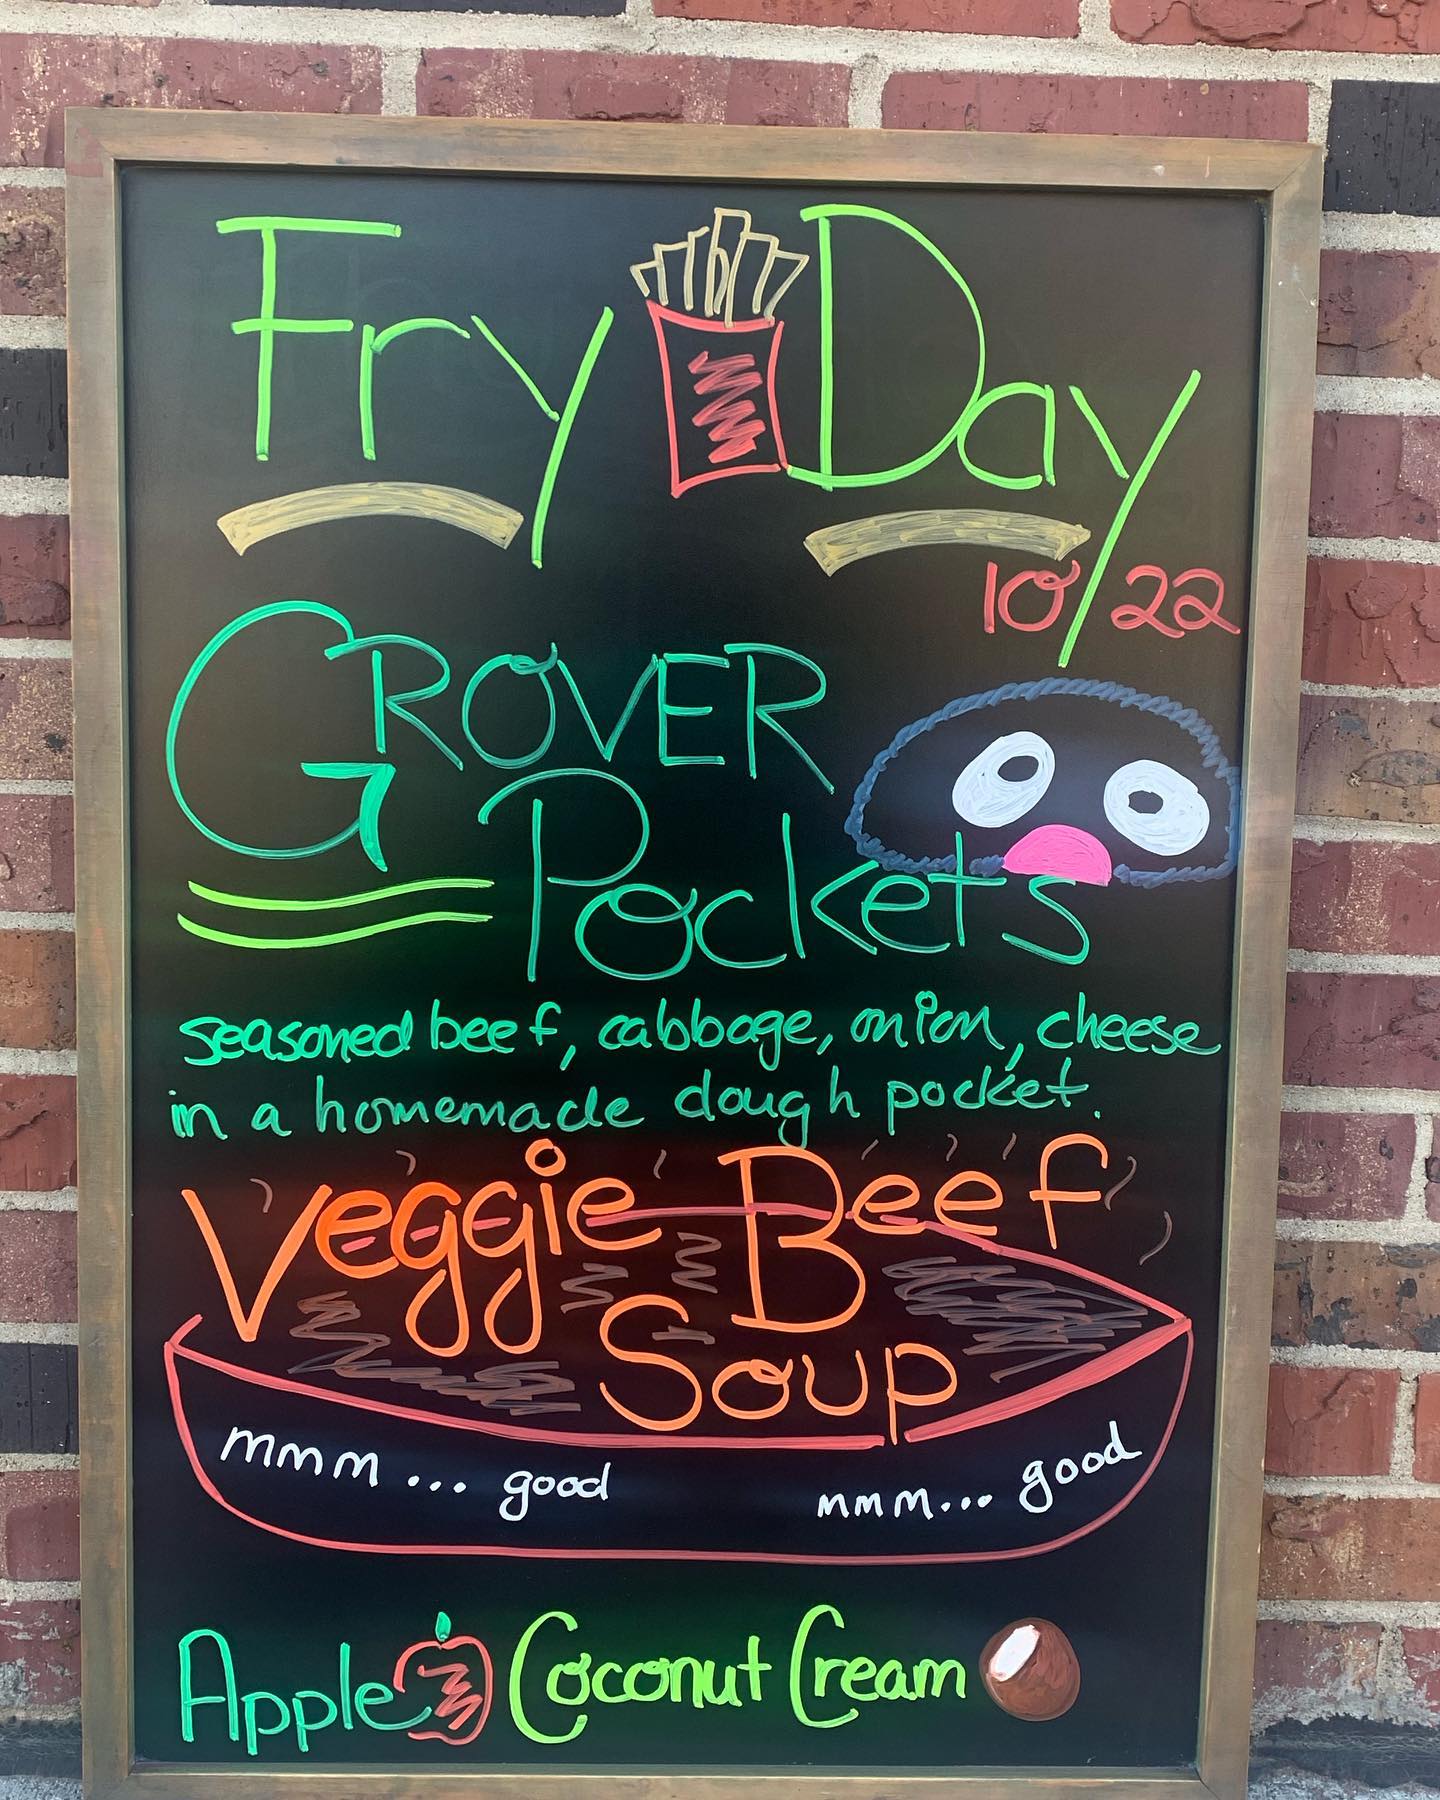 Fry Day
10/22
GROVER
Pockets
seasoned beef, cabbage, onion, cheese
in a homemade dough pocket.
Veggie Beef
Soup
mmm... good mmm... good
Apple Coconut Cream